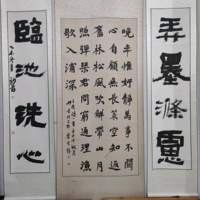 弄墨滌慮
晚年惟好靜萬事不關
心自顧無長策空知返
舊林松風吹解帶山月
照彈琴君問窮通理漁
歌入浦深
臨池洗心